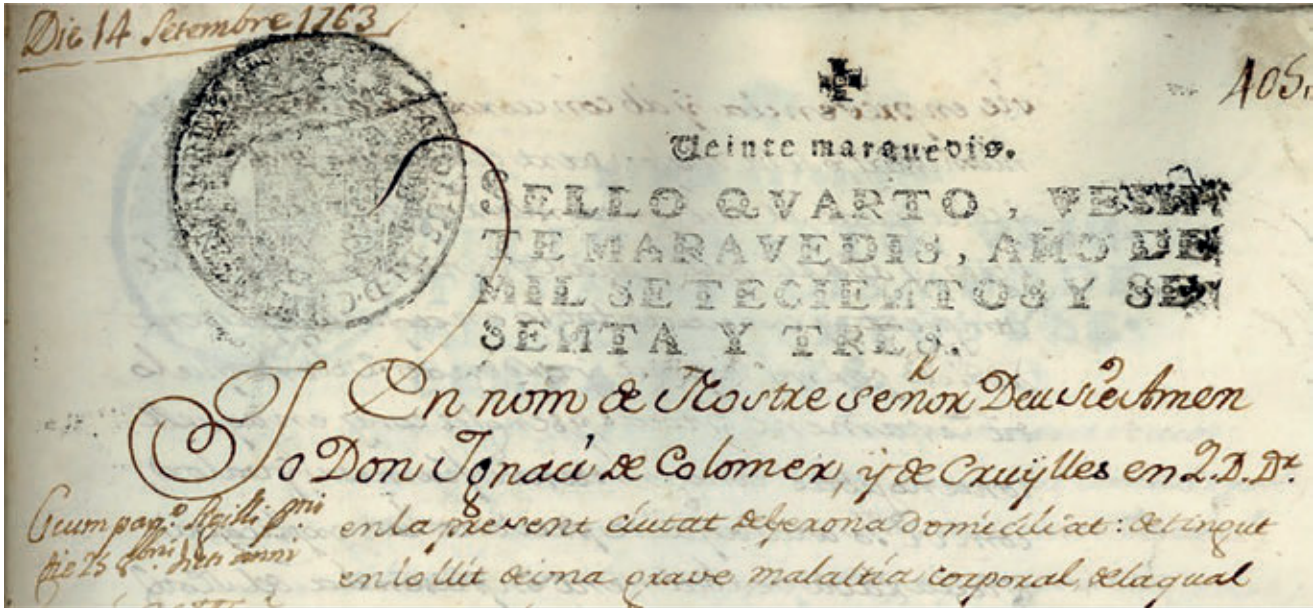 Die 14 Setembre 1763
405.
Veinte marauedis.
SELLO QVARTO, VEIN
TE MARAVEDIS, AÑO DE
MIL SETECIENTOS Y SE
SENTA Y TRES.
En nom de Nostre Señor Deu sie Amen
Jo Don Ignaci de Colomer, y de Cruÿlles en
en la present ciutat de Gerona domiciliat: detingut
en lo llit de una grave malaltia corporal, de la qual